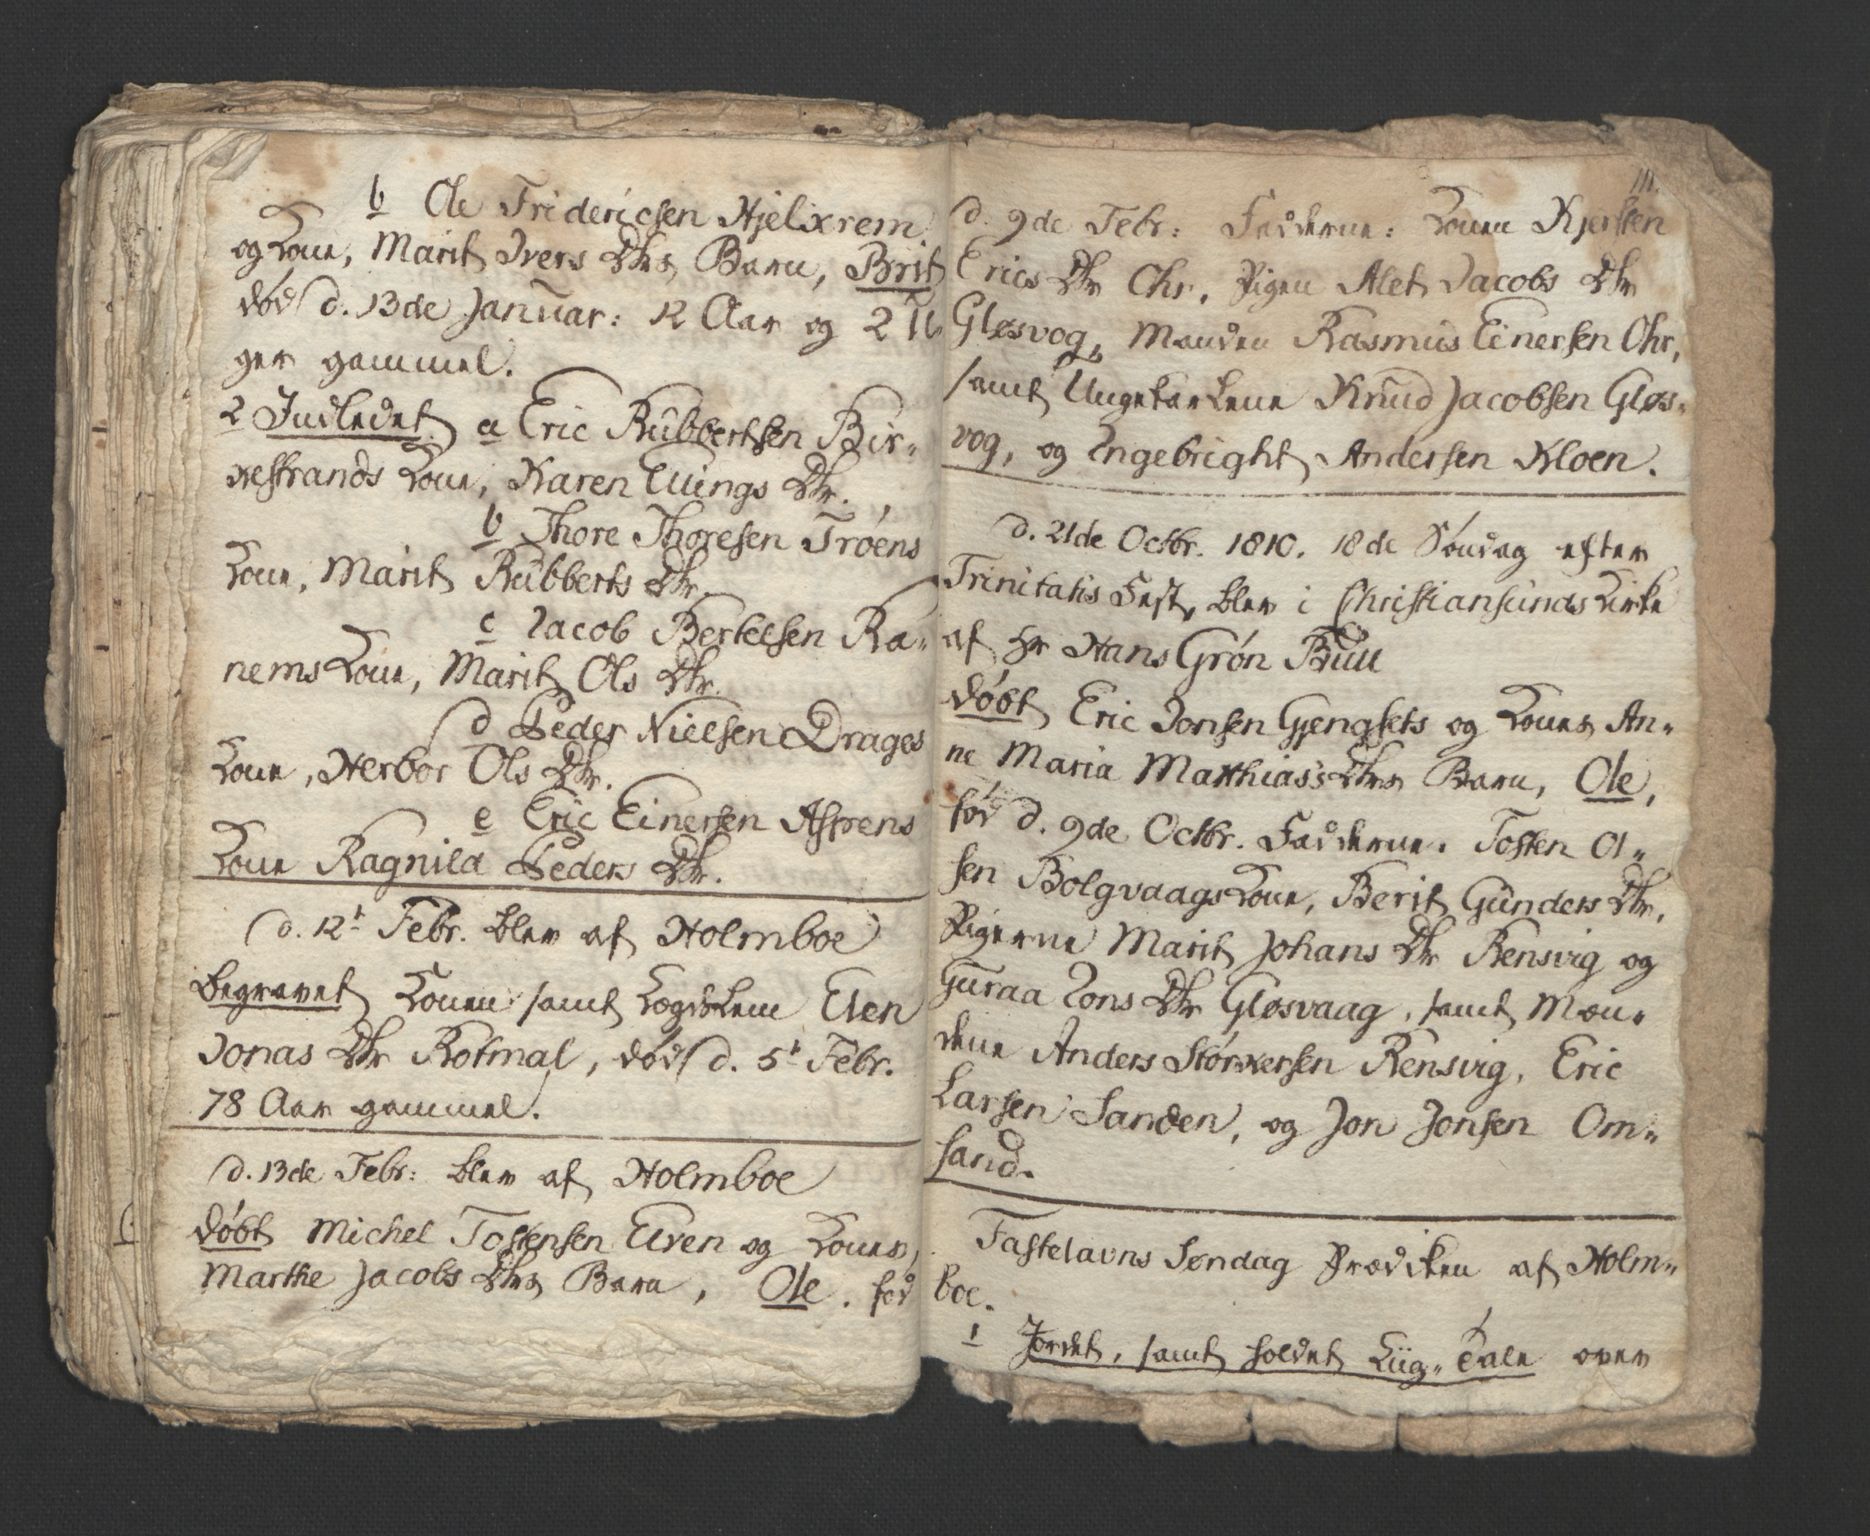 b Ole Fridericsen Hjelxrem
og Kone, Marit Ivers Dtrs Barn, Brit
død d. 13de Januar: 12 Aar og 2 U
ger gammel.
2 Indledet a Eric Rubbertsen Bir-
kestrands Kone, Karen Ellings Dtr.
b Thore Thoresen Trøens
Kone, Marit Rubberts Dtr.
c Jacob Bertelsen Ra-
nems Kone, Marit Ols Dtr.
d Peder Nielsen Drages
Kone, Herbor Ols Dtr.
e Eric Einersen Asprens
Kone Ragnild Peders Dtr.
d. 12t Febr. blev af Holmboe
begravet Konen samt Lægdslem Elen
Jonas Dtr Rotmal, død d. 5t Febr.
78 Aar gammel.
d. 13de Febr: blev af Holmboe
døbt Michel Tostensen Elven og Kones,
Marthe Jacobs Dtrs Barn, Ole. fød
111.
d. 9de Febr: Fadderne: Konen Kjersten
Erics Dtr Chr, Pigen Alet Jacobs Dtr
Gløsvog, Manden Rasmus Einersen Chr,
samt Ungekarlene Knud Jacobsen Gløs-
vog, og Engebright Andersen Kloen.
d. 21de Octbr. 1810. 18de Søndag efter
Trinitatis Fest, blev i Christiansunds Kirke
af Hr Hans Grøn Bull
døbt Eric Jonsen Gjengsets og Kones An-
ne Maria Matthias's Dtrs Barn, Ole,
fød d. 9de Octbr. Fadderne. Tosten Ol-
sen Bolgvaags Kone, Berit Gunders Dtr,
Pigerne Marit Johans Dtr Rensvig og
Guraa Jons Dtr Gløsvaag, samt Mæn-
dene Anders Størkersen Rensvig, Eric
Larsen Sanden, og Jon Jonsen Om-
sand.
Fastelavns Søndag Prædiken af Holm-
boe.
1 Jordet, samt holdet Liig-Tale over